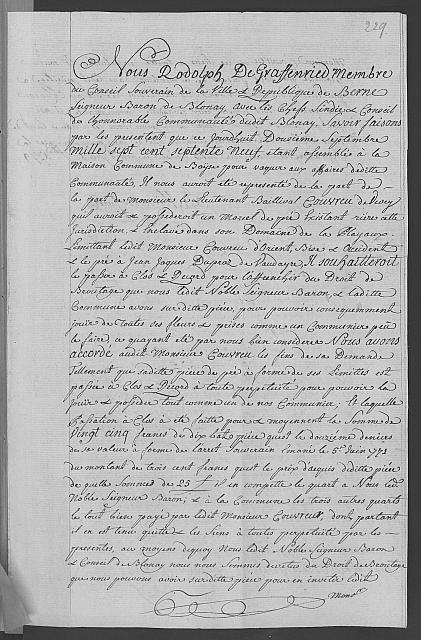 229
Nous Rodolph De Graffenried Membre
du Conseil Souverain de la Ville & Republique de Berne
Seigneur Baron de Blonay, avec les Chefs Sindic & Conseil
de l'honnorable Communauté dudit Blonay, Savoir faisons
par les presentes que ce Jourdhuit Douzième Septembre
Mille Sept Cent Septente Neuf, etant assemblé à la
Maison Commune de pour vaquer aux affaires deditte
Communauté. Il nous auroit eté representé de la part de
la part de monsieur le Lieutenant Baillival Couvreu de Vevey
qu'il auroit & possederoit un Morcel de pré Existant riere cette
Jurisdiction, & Enclavé dans son Domaine de la
Limittant ledit Monsieur Couvreu d'Orient, Bise & Occident
& le pré à Jean Jaques Dupraz de Vent. Il souhaitteroit
le passer à Clos & Record pour l'affranchir du Droit de
que nous ledit Noble Seigneur Baron, & laditte
Commune avons sur ditte pièce, pour pouvoir consequemment
jouir de toutes ses fleurs & prises comme un Communier peut
le faire, ce qu'ayant eté par nous bien consideré Nous avons
accordé audit Monsieur Couvreu les fins de sa Demande
Tellement que saditte pièce de pré à forme de ses Limites est
passée à Clos & Record à toute perpetuité pour pouvoir la
Jouir & posseder tout comme un de nos Communier; & laquelle
Passation à Clos a eté faitte pour & moyennent la Somme de
Vingt Cinq francs de dix batz pièce quest le douzième deniers
de sa valeur à forme de l'arret Souverain émané le 5e Juin
du montant de trois cent francs quest le prix d'aquis deditte pièce
de quelle Sommes de 25 f il en compette le quart à Nous ledit
Noble Seigneur Baron; & à la Commune les trois autres quarts
le tout bien payé par ledit Monsieur Couvreu, dont partant
il en est tenu quitte & les Siens à toutes perpetuité par les
presentes, au moyens dequoy Nous ledit Noble Seigneur Baron
& Conseil de Blonay nous nous sommes devetus du Droit de
que nous pouvons avoir sur ditte pièce pour en investir ledit
Monsr